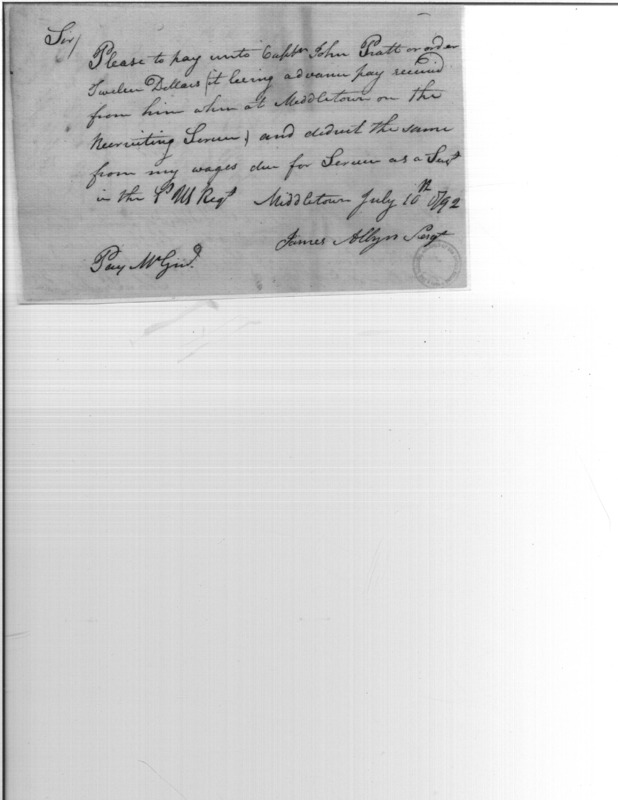 Sir/
Please to pay unto Captn John Pratt or order
Twelve Dollars (it being advance pay receivd
from him when at Middletown on the
Recruiting Service) and deduct the same
from my wages due for Service as a Sergt
in the US Regt Middletown July 10th 1792
James Allyn Sergt
Pay Mr Genl